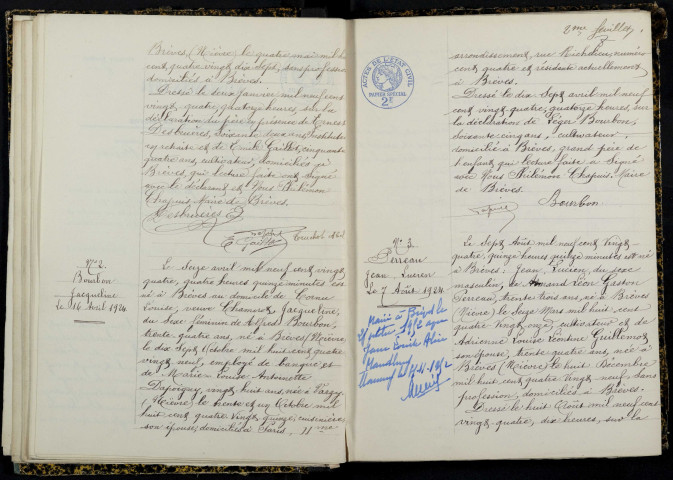 Brèves (Nièvre) le quatre mai mil huit
cent quatre vingt dix sept, sans profession
domiciliés à Brèves.
Dressé le deux Janvier, mil neuf cent
vingt quatre, quatorze heures, sur la
déclaration du père en présence de Ernest
Desbruères, soixante deux ans, Instituteur
en retraite et de Emile Gaillot, cinquante
quatre ans, cultivateur, domiciliés à
Brèves, qui lecture faite ont signé
avec le déclarant et Nous Philémon
Chapuis Maire de Brèves.
Desbruères
E. Gaillot
N° 2
Bourbon
Jacqueline
le 16 Avril 1924
Le Seize avril mil neuf cent vingt
quatre, quatre heures quinze minutes est
né à Brèves au domicile de Cornu
Louise, veuve Chamard, Jacqueline,
du sexe féminin de Alfred Bourbon,
trente quatre ans, né à Brèves (Nièvre,
le dix Sept Octobre mil huit cent quatre
vingt neuf, employé de banque et
de Marie Louise Antoinette
Dapoigny, vingt huit ans, née à Varzy
(Nièvre) le trente et un Octobre mil
huit cent quatre vingt quinze, couturière
son épouse, domiciliés à Paris 11me
2me feuillet
ACTES DE L'ÉTAT CIVIL
PAPIER SPÉCIAL
2F
arrondissement, rue Richelieu, numéro
cent quatre et résidants actuellement
à Brèves.
Dressé le dix Sept avril mil neuf
cent vingt quatre, quatorze heures, sur
la déclaration de Léger Bourbon,
soixante cinq ans, cultivateur,
domicilié à Brèves, grand père de
l'enfant, qui lecture faite a Signé
avec Nous Philémon Chapuis, Maire
de Brèves.
Bourbon
N° 3
Perreau
Jean Lucien
Le 7 Août 1924
Marié à
1952 avec
Le Sept Août mil neuf cent vingt
quatre, quinze heures quinze minutes est né
à Brèves: Jean, Lucien, du sexe
masculin, de Armand Léon Gaston
Perreau, trente trois ans, né à Brèves
(Nièvre) le Seize Mars mil huit cent
quatre vingt onze, cultivateur et de
Adrienne Louise Léontine Guillemot
son épouse, trente quatre ans, née à
Brèves (Nièvre) le huit Décembre
mil huit cent quatre vingt neuf, sans
profession, domiciliés à Brèves.
Dressé le huit Août mil neuf cent
vingt quatre, dix heures, sur la